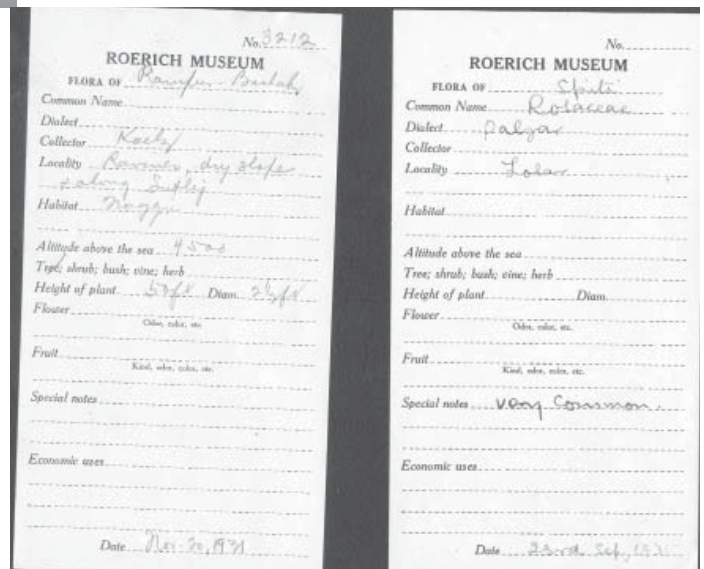 No. 3212
ROERICH MUSEUM
FLORA OF Rampur-Bushahr
Common Name
Dialect
Collector Koelz
Locality Ravines, dry slope
+ along Sutlej
Habitat
Altitude above the sea 4500
Tree; shrub; bush; vine; herb
Height of plant 50 ft Diam. 2½ ft
Flower
Odor, color, etc.
Fruit
Kind, odor, color, etc.
Special notes
Economic uses
Date Nov. 20, 1931
No.
ROERICH MUSEUM
FLORA OF Spiti
Common Name Rosaceae
Dialect Palgar
Collector
Locality Losar
Habitat
Altitude above the sea
Tree; shrub; bush; vine; herb
Height of plant Diam.
Flower
Odor, color, etc.
Fruit
Kind, odor, color, etc.
Special notes very Common.
Economic uses
Date 23rd Sep, 1931